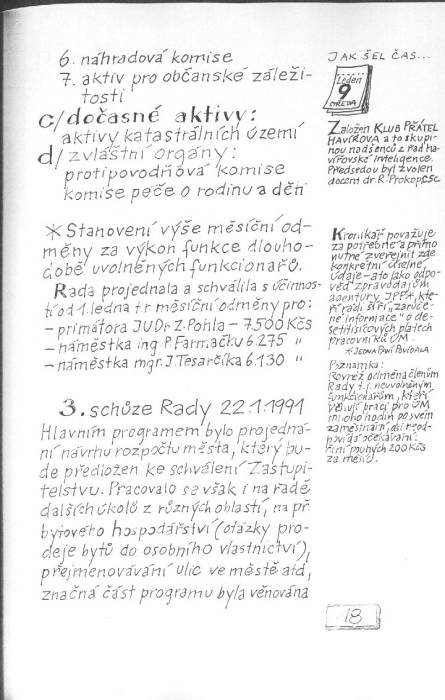 6. náhradová komise
7. aktiv pro občanské záleži-
tosti
c/dočasné aktivy:
aktivy katastrálních území
d/zvláštní orgány:
protipovodňová komise
komise péče o rodinu a děti
* Stanovení výše měsíční od-
měny za výkon funkce dlouho-
době uvolněných funkcionářů.
Rada projednala a schválila s účinnos-
tí od 1. ledna t.r. měsíční odměny pro:
- primátora JUDr Z. Pohla - 7.500 Kčs
- náměstka ing P. Farmačku 6.275 "
- náměstka mgr. J. Tesarčíka 6.130 "
3. schůze Rady 22.1.1991
Hlavním programem bylo projedná-
ní návrhu rozpočtu města, který bu-
de předložen ke schválení Zastupi-
telstvu. Pracovalo se však i na řadě
dalších úkolů z různých oblastí, na př.
bytového hospodářství (otázky pro-
deje bytů do osobního vlastnictví),
přejmenovávání ulic ve městě atd,
značná část programu byla věnována
JAK ŠEL ČAS...
Leden
9
STŘEDA
Založen KLUB PŘÁTEL
HAVÍŘOVA a to skupi-
nou nadšenců z řad ha-
vířovské inteligence.
Předsedou byl zvolen
docent dr. R. Prokop, CSc.
Kronikář považuje
za potřebné a přímo
nutné zveřejnit zde
konkrétní číselné
údaje - ato jako odpo-
věď zpravodajům
agentury JPP*, kte-
ří rádi šíří "zaruče-
né informace" o de-
setitisícových platech
pracovníků ÚM.
* JEDNA PANÍ POVÍDALA
Poznámka:
Rovněž odměna členům
Rady, t.j. neuvolněným
funkcionářům, kteří
věnují práci pro ÚM
mnoho hodin po svém
zaměstnání, ani neod-
povídá očekávání.
Činí pouhých 200 Kčs
za měsíc.
18